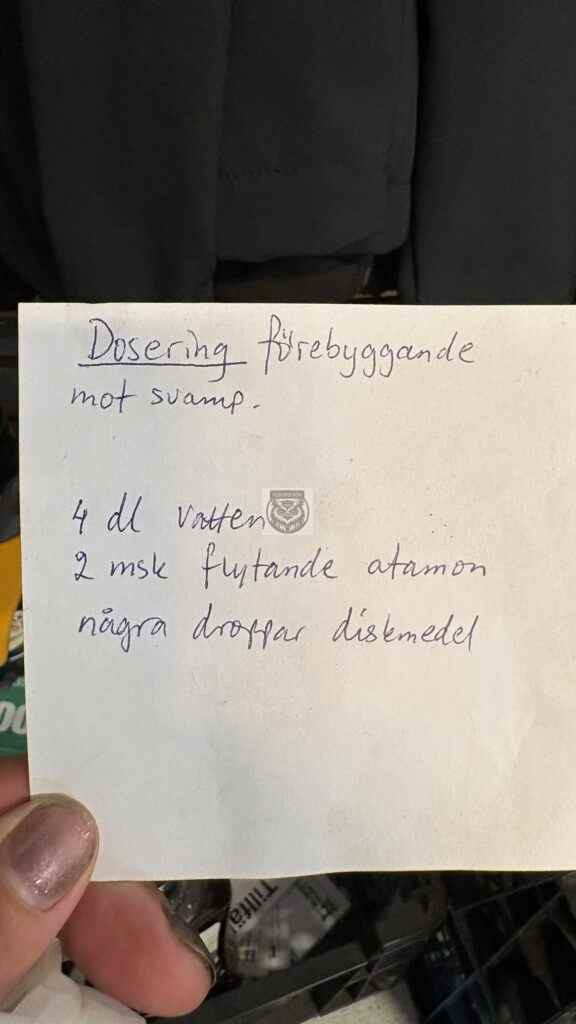 Dosering förebyggande
mot svamp.
4 dl vatten
2 msk flytande atamon
några droppar diskmedel
Tillfä